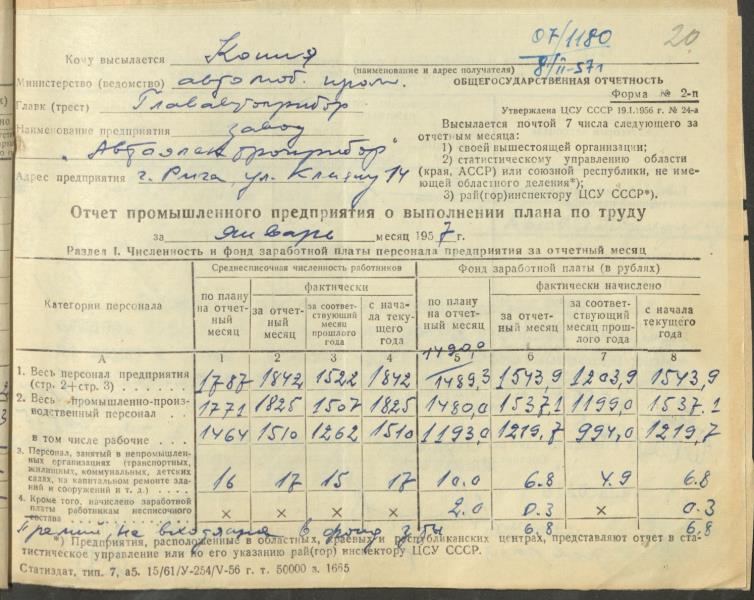 07/1180
20
8/II-57г
Кому высылается Копия
(наименование и адрес получателя)
Министерство (ведомство) автомоб. пром.
ОБЩЕГОСУДАРСТВЕННАЯ ОТЧЕТНОСТЬ
Главк (трест) Глававтоприбор
Форма № 2-п
Утверждена ЦСУ СССР 19.I.1956 г. № 24-а
Наименование предприятия завод
"Автоэлектроприбор"
Адрес предприятия г. Рига, ул. Клияну 14
Высылается почтой 7 числа следующего за
отчетным месяца:
1) своей вышестоящей организации;
2) статистическому управлению области
(края, АССР) или союзной республики, не име-
ющей областного деления*);
3) рай(гор)инспектору ЦСУ СССР*).
Отчет промышленного предприятия о выполнении плана по труду
за январь месяц 1957 г.
Раздел I. Численность и фонд заработной платы персонала предприятия за отчетный месяц
Категории персонала
Среднесписочная численность работников
Фонд заработной платы (в рублях)
по плану на отчет- ный месяц
фактически
за отчет- ный месяц
за соответ- ствующий месяц прошлого года
с нача- ла теку- щего года
по плану на отчет- ный месяц
фактически начислено
за отчетный месяц
за соответ- ствующий месяц прош- лого года
с начала текущего года
А 1 2 3 4 5 6 7 8
1490,0
1. Весь персонал предприятия
(стр. 2+стр. 3) 1787 1842 1522 1842 1489,3 1543,9 1203,9 1543,9
2. Весь промышленно-произ-
водственный персонал 1771 1825 1507 1825 1480,0 1537,1 1199,0 1537.1
в том числе рабочие 1464 1510 1262 1510 1193,0 1219,7 994,0 1219,7
3. Персонал, занятый в непромышлен-
ных организациях (транспортных,
жилищных, коммунальных, детских
садах, на капитальном ремонте зда-
ний и сооружений и т. д.) 16 17 15 17 10.0 6.8 4.9 6.8
4. Кроме того, начислено заработной
платы работникам несписочного
состава × × × × 2.0 0.3 × 0.3
Премии, не входящая в фонд з/пы 6.8 6.8
*) Предприятия, расположенные в областных, краевых и республиканских центрах, представляют отчет в ста-
тистическое управление или по его указанию рай(гор) инспектору ЦСУ СССР.
Статиздат, тип. 7, а5. 15/61/У-254/V-56 г. т. 50000 з. 1665